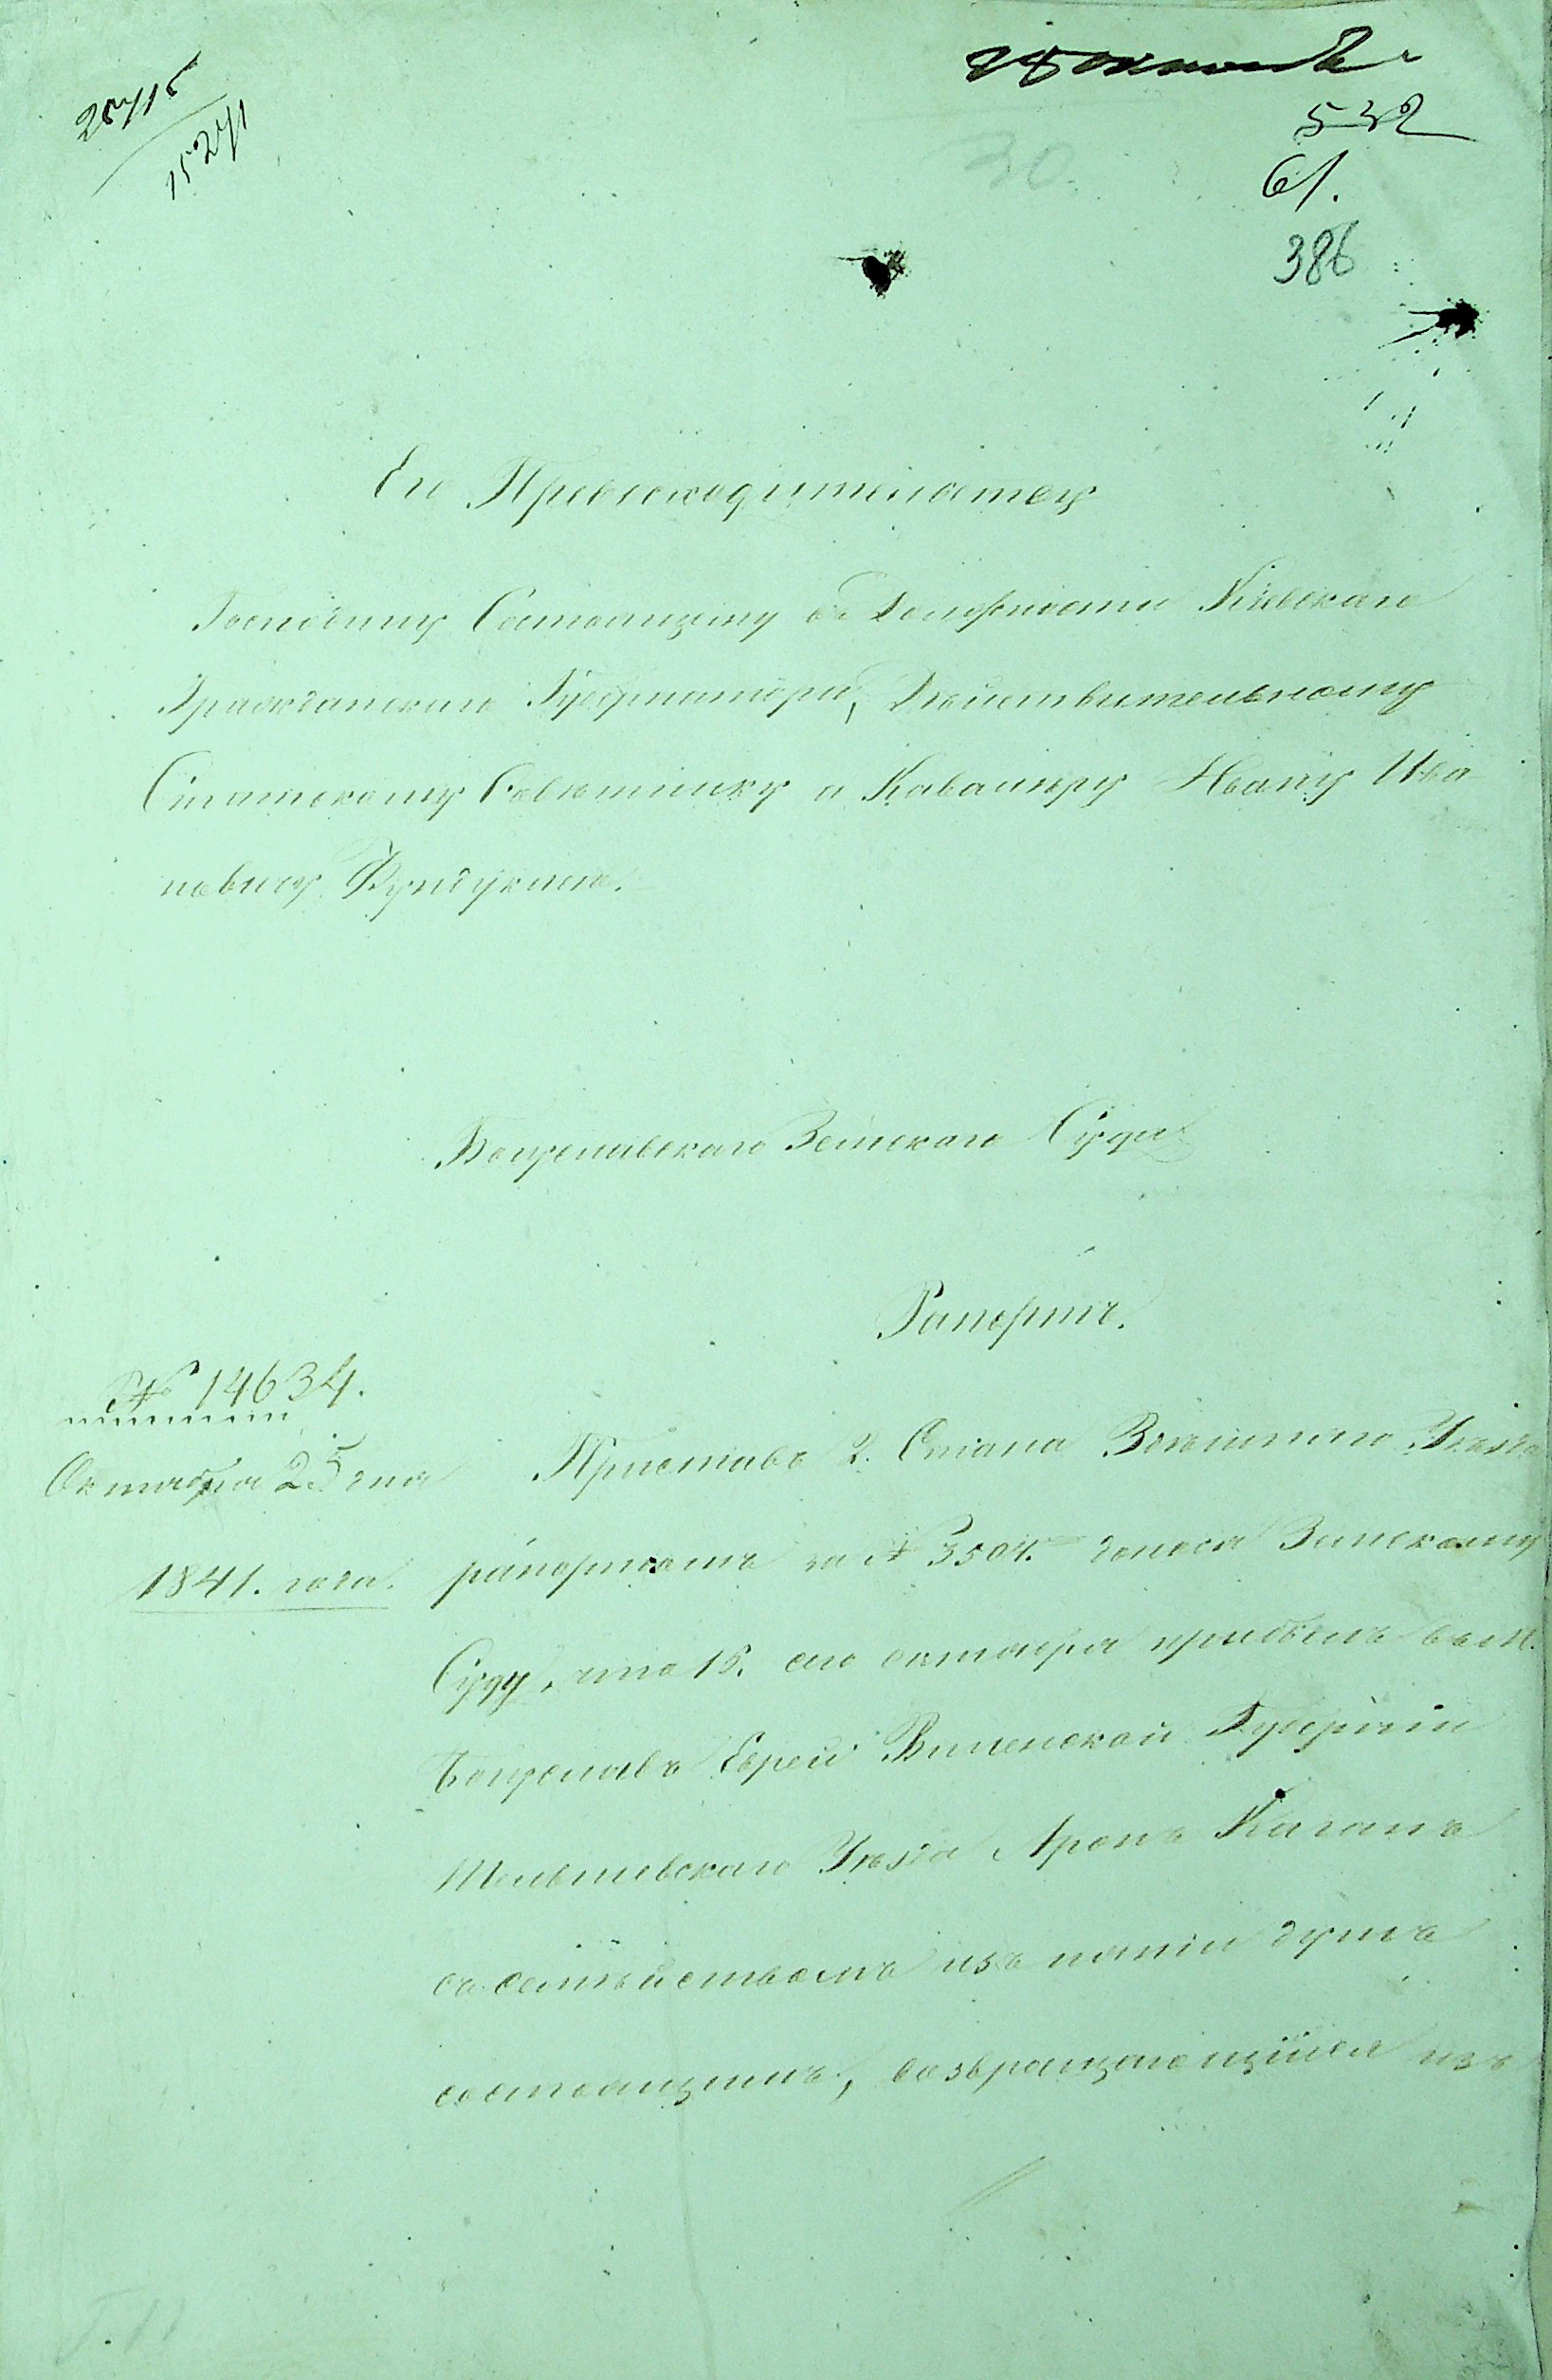 25715
15271
28 октября
532
61.
386
30.
Его Превосходительству
Господину Состоящему въ Должности Кіевскаго
Гражданскаго Губернатора, Дѣйствительному
Статскому Совѣтнику и Кавалеру Ивану Ива
новичу Фундуклею.
Богуславскаго Земскаго Суда
Рапортъ.
№ 14634.
Октября 25 дня
1841. года.
Приставъ 2. Стана Здѣшняго Уѣзда
рапортомъ за № 3504. донося Земскому
Суду, что 15. сего октября прибылъ въ М.
Богуславъ Еврей Виленской Губерніи
Тельшевскаго Уѣзда Аронъ Каганъ
съ семѣйствомъ изъ пяти душъ
состоящимъ, возвращающійся изъ